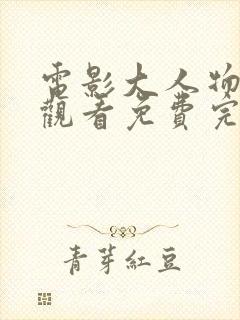 電影大人物
觀看免費完
青芽紅豆